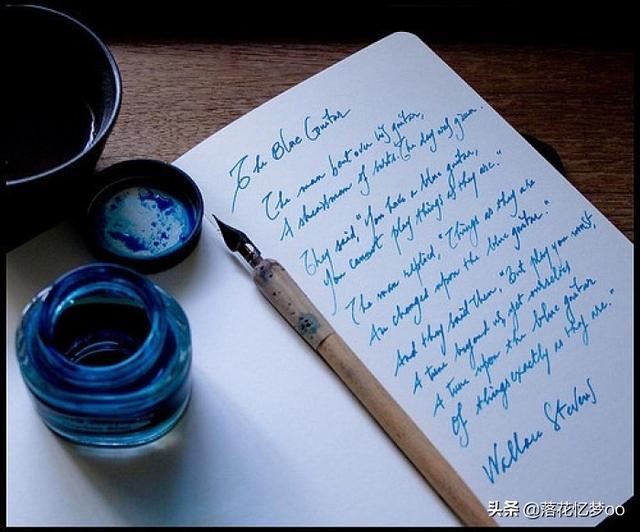 The Blue Guitar
The man bent over his guitar,
A shearsman of sorts. The day was green.
They said, "You have a blue guitar,
You cannot play things as they are."
The man replied, "Things as they are
Are changed upon the blue guitar."
And they said then, "But play you must,
A tune beyond us, yet ourselves
A tune upon the blue guitar
Of things exactly as they are."
Wallace Stevens
头条 @落花忆梦oo